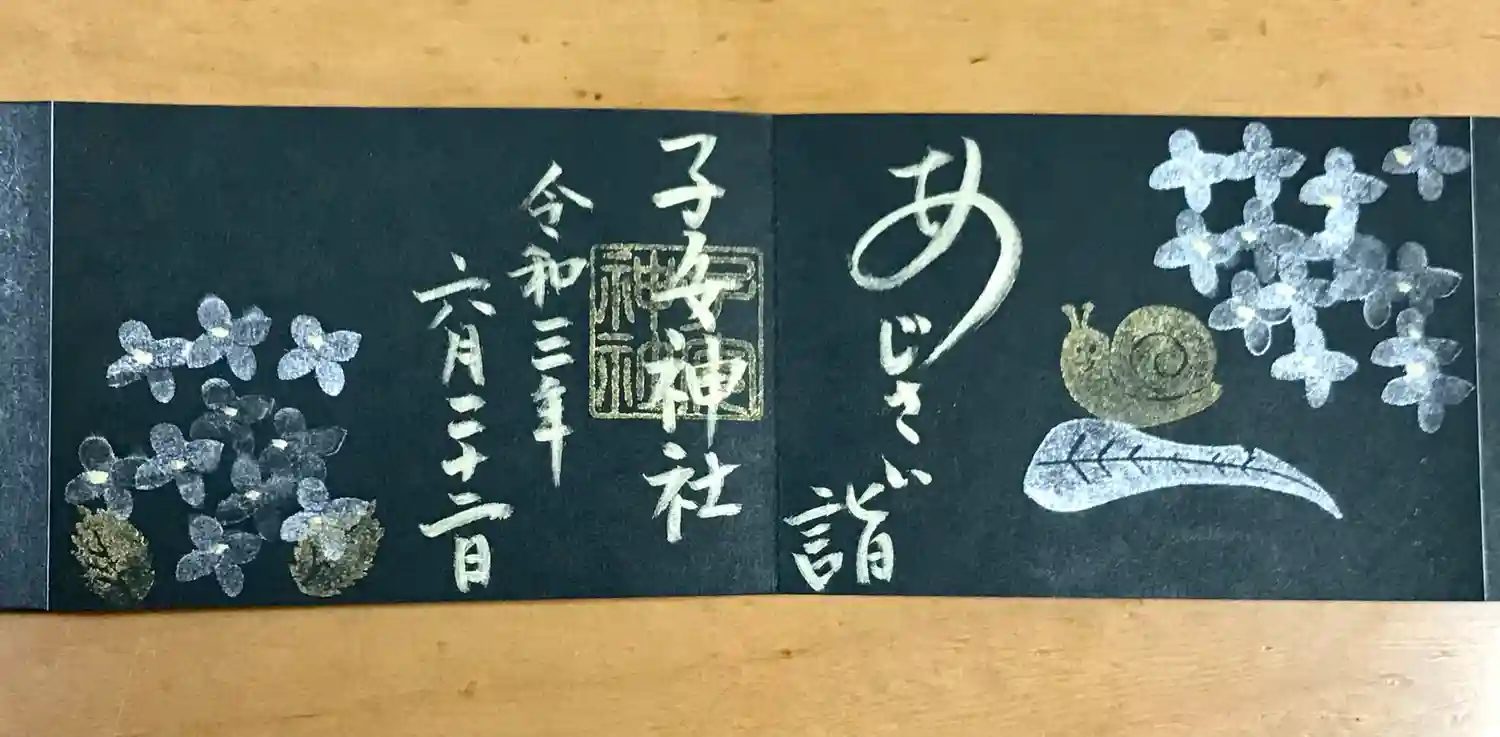 あじさい
詣
子安神社
子安
神社
令和三年
六月二十二日